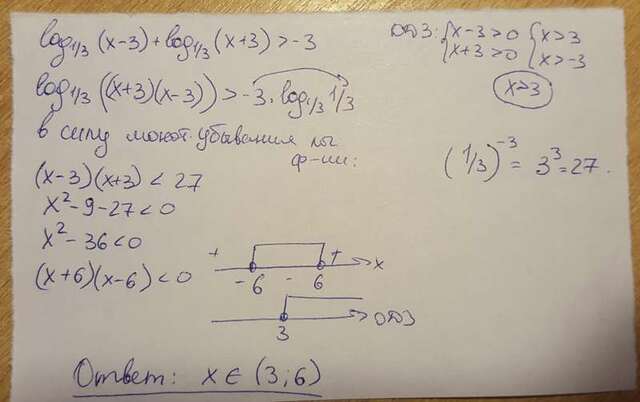 log₁/₃ (x-3) + log₁/₃ (x+3) > -3
ОДЗ: { x-3>0 { x>3
x+3>0 x>-3
x>3
log₁/₃ ((x+3)(x-3)) > -3·log₁/₃ 1/3
в силу монот. убывания log
ф-ии:
(1/3)⁻³ = 3³ = 27.
(x-3)(x+3) < 27
x²-9-27<0
x²-36<0
(x+6)(x-6)<0
+ - + x
-6 6
ОДЗ
3
Ответ: x ∈ (3; 6)